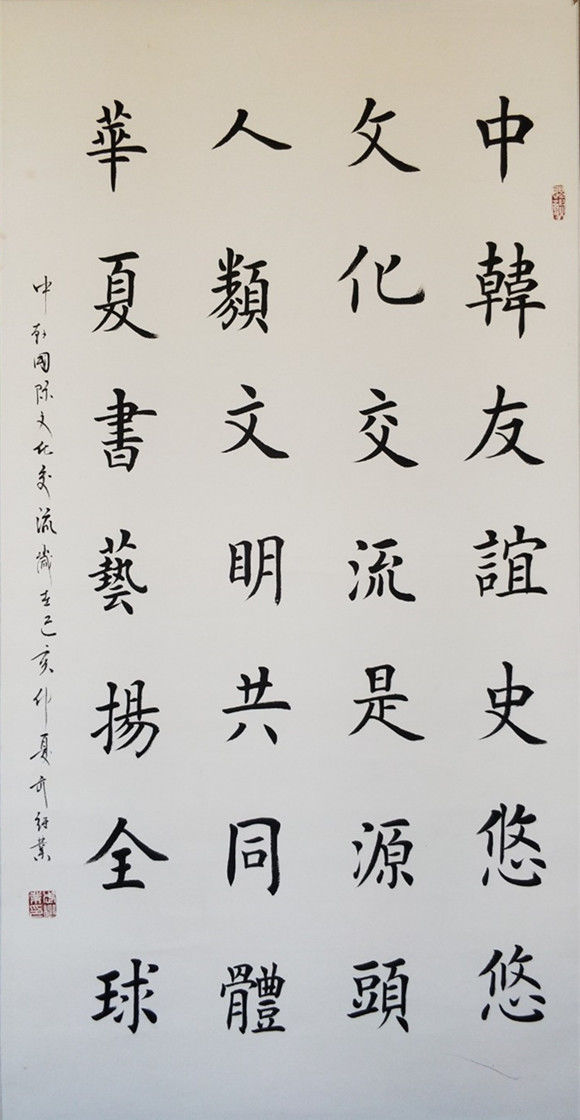 中韓友誼史悠悠
文化交流是源頭
人類文明共同體
華夏書藝揚全球
中韩国际文化交流歲在己亥仲夏